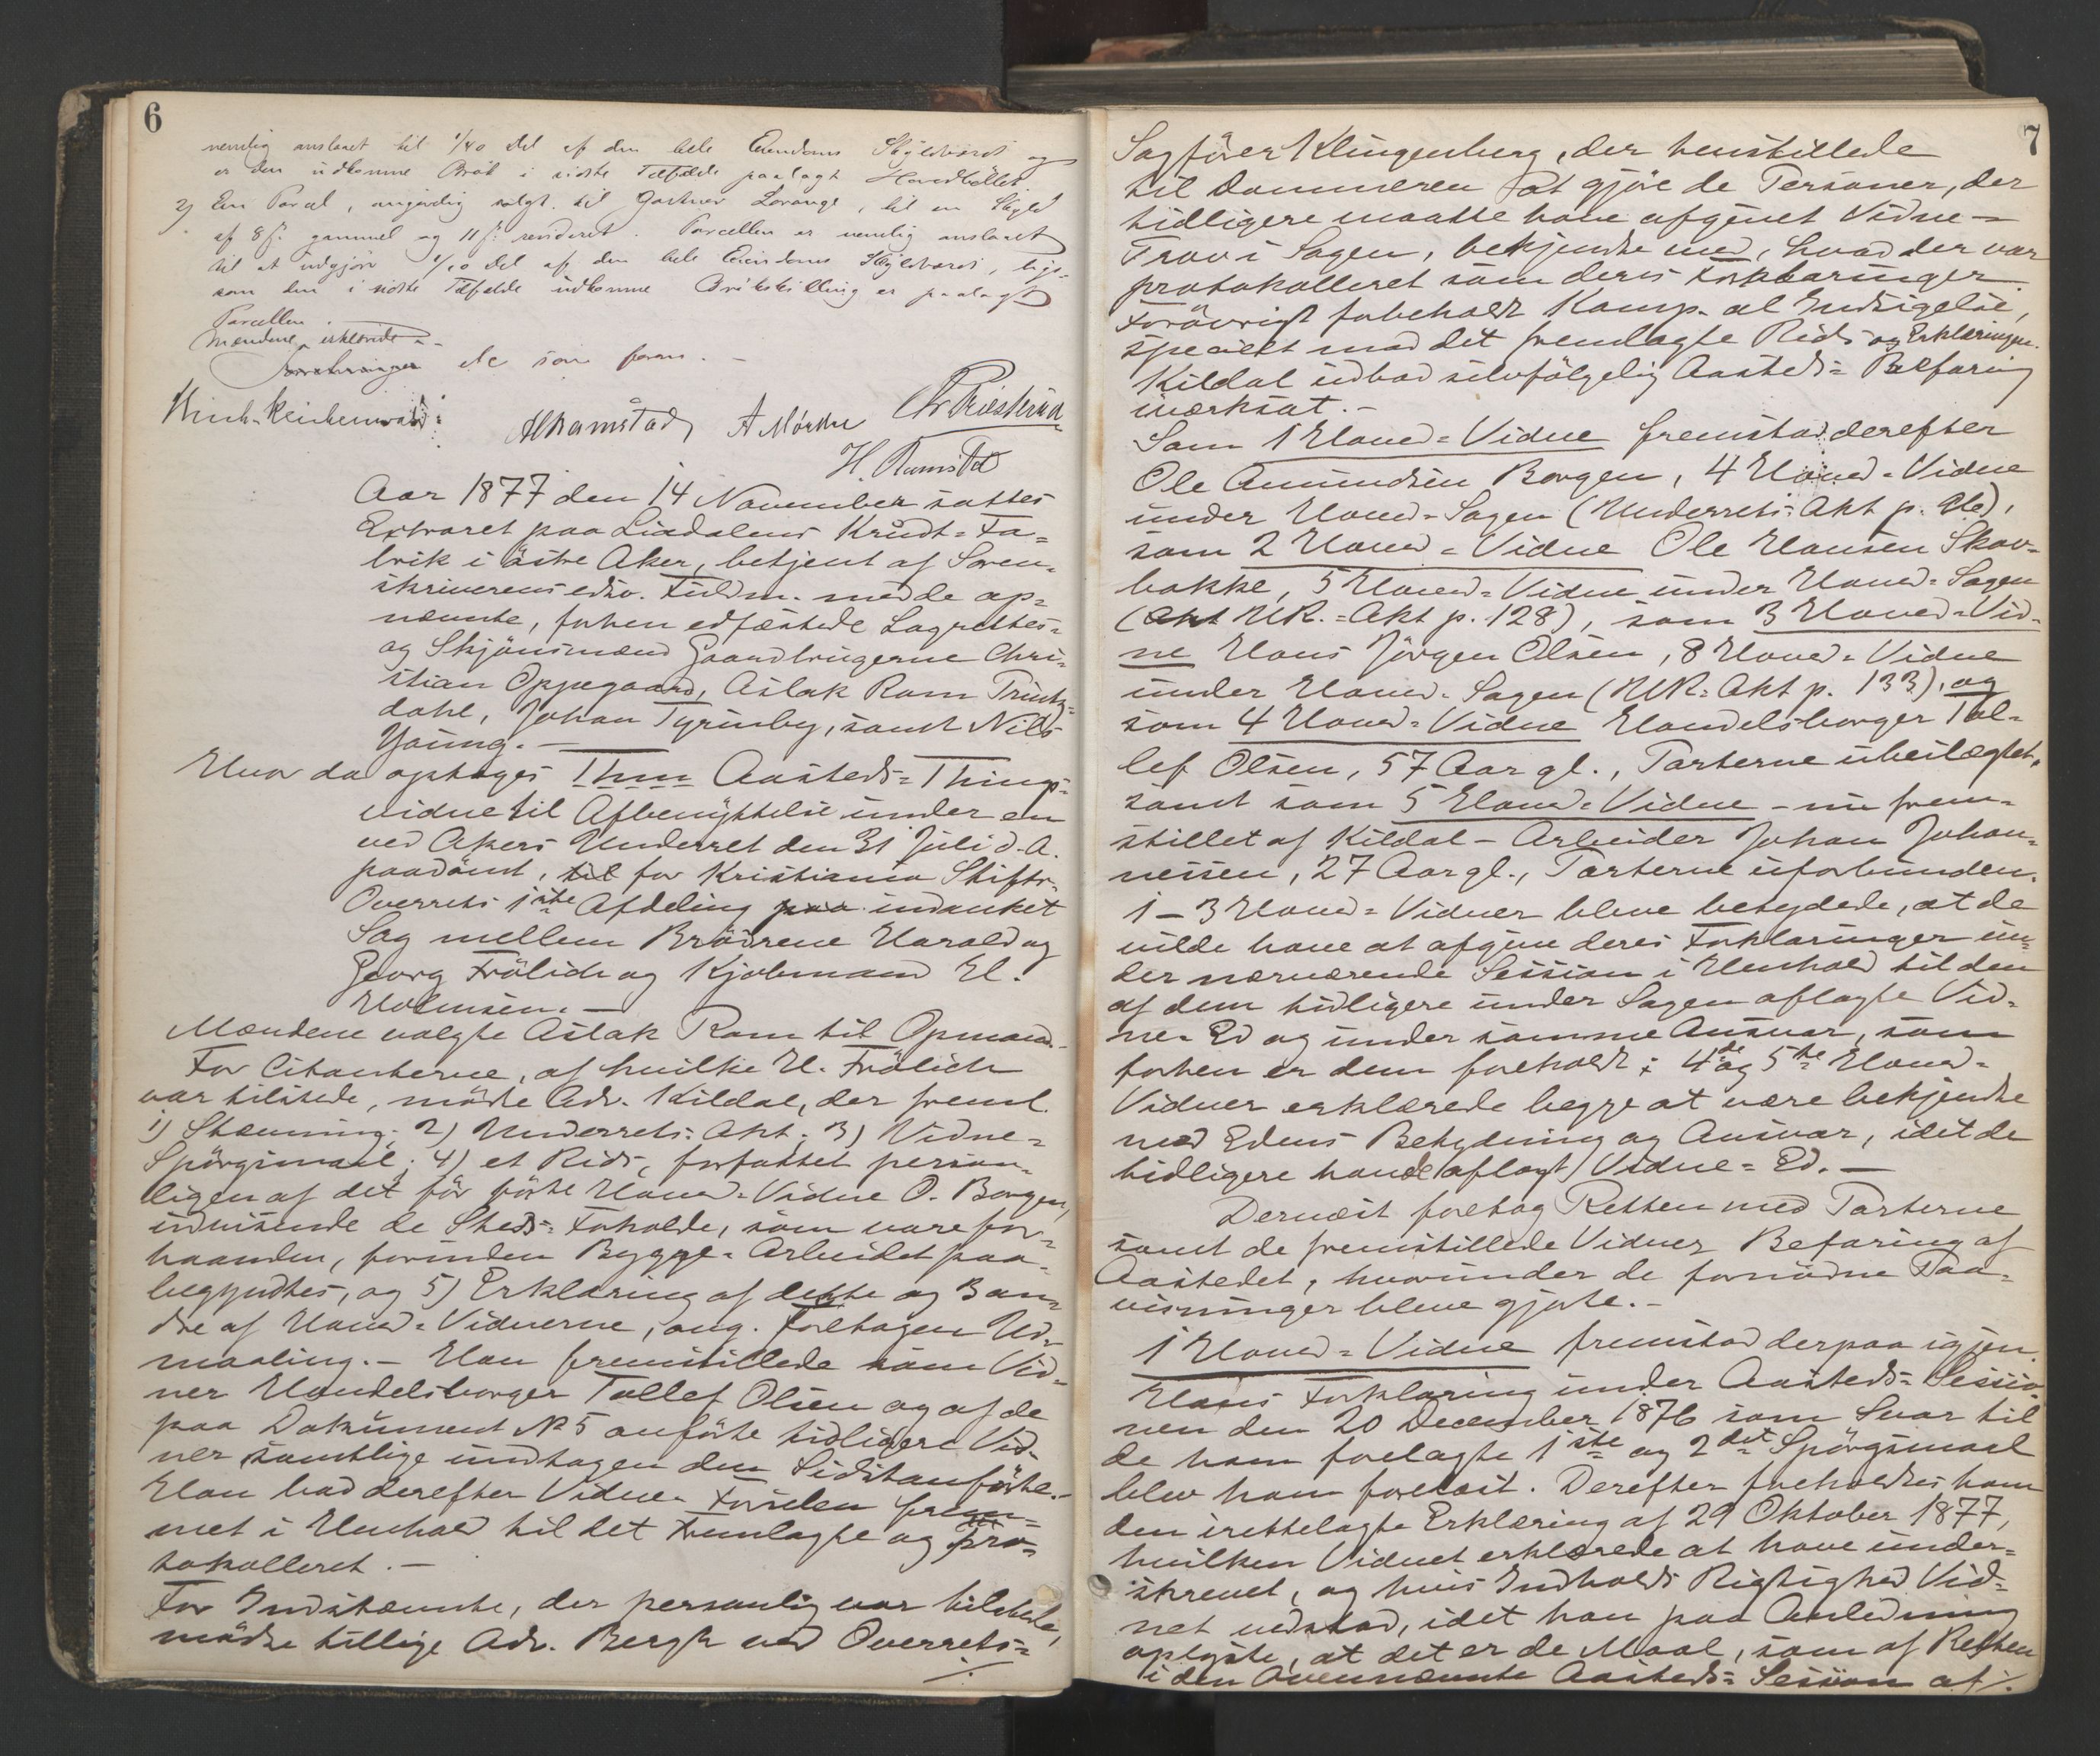 6
nemlig anslaaet til 1/40 Del af den hele Eiendoms Skyldværdi og
er den udkomne Brøk i sidste Tilfælde paalagt Hovedbøllet.
2) En Parcel, angivelig solgt til Gartner Lorange, til en Skyld
af 8 ſ. gammel og 11 ſ. revideret. Parcellen er nemlig anslaaet
til at udgjøre 1/10 Del af den hele Eiendoms Skyldværdi, lige-
som den i sidste Tilfælde udkomne Brökskilling er paalagt
Parcellen.
Mændene erklærede
etc som foran. -
A Ramstad A Mørku Chr Præsterud
H. Ramstad
Aar 1877 den 14 November sattes
Extraret paa Liadalens Krudt-Fa-
brik i östre Aker, betjent af Soren-
skriverens edsv. Fuldm. med de op-
nævnte, forhen edfæstede Lagrettes-
og Skjönsmænd Gaardbrugerne Chri-
stian Oppegaard, Aslak Ram Trints-
dahl, Johan Tyrinby, samt Nils
Young. -
Hvor da optoges Thm Aasteds-Things-
vidne til Afbenyttelse under en
ved Akers Underret den 31 Juli d.A.
paadömt, til for Kristiania Stifts-
Overrets 1ste Afdeling paa indanket
Sag mellem Brödrene Harald og
Georg Frölich og Kjöbmand H.
Holmsen. -
Mændene valgte Aslak Ram til Opmand.
For Citanterne, af hvilke H. Frölich
var tilstede, mödte Adv. Kildal, der freml.
1) Stævning; 2) Underrets-Akt; 3) Vidne-
Spörgsmaal; 4) et Rids, forfattet person-
ligen af det för förte Hoved-Vidne O. Borgen,
udvisende de Steds-Forholde, som vare for-
haanden, forinden Bygge-Arbeidet paa-
begyndtes, og 5) Erklæring af dette og 3 an-
dre af Hoved-Vidnerne, ang. foretagen Ud-
maaling. - Han fremstillede som Vid-
ner Handelsborger Tollef Olsen og af de
paa Dokument No 5 anförte tidligere Vid-
ner samtlige undtagen den Sidstanförte. -
Han bad derefter Vidne-Förselen frem-
met i Henhold til det Fremlagte og Pro-
tokolleret. -
For Indstævnte, der personlig var tilstede,
mödte tillige Adv. Bergh ved Overrets-
./.
7
Sagförer Klingenberg, der henstillede
til Dommeren at gjöre de Personer, der
tidligere maatte have afgivet Vidne-
Prov i Sagen, bekjendte med, hvad der var
protokolleret som deres Forklaringer.
Forövrigt forbeholdt Komp. al Indsigelse,
specielt mod det fremlagte Rids og Erklæringen.
Kildal udbad selvfölgelig Aasteds-Befaring
iværksat. -
Som 1 Hoved-Vidne fremstod derefter
Ole Amundsen Borgen, 4 Hoved-Vidne
under Hoved-Sagen (Underrets-Akt p. ),
som 2 Hoved-Vidne Ole Hansen Skov-
bakke, 5 Hoved-Vidne under Hoved-Sagen
(Akt UR.-Akt p. 128), som 3 Hoved-Vid-
ne Hans Jörgen Olsen, 8 Hoved-Vidne
under Hoved-Sagen (UR-Akt p. 133), og
som 4 Hoved-Vidne Handelsborger Tol-
lef Olsen, 57 Aar gl., Parterne ubeslægtet,
samt som 5 Hoved-Vidne - nu frem-
stillet af Kildal - Arbeider Johan Johan-
nessen, 27 Aar gl., Parterne uforbunden.
1-3 Hoved-Vidner bleve betydede, at de
vilde have at afgive deres Forklaringer un-
der nærværende Session i Henhold til den
af dem tidligere under Sagen aflagte Vid-
ne-Ed og under samme Ansvar, som
forhen er dem foreholdt; 4de og 5te Hoved-
Vidner erklærede begge at være bekjendte
med Edens Betydning og Ansvar, idet de
tidligere havde aflagt Vidne-Ed. -
Dernæst foretog Retten med Parterne
samt de fremstillede Vidner Befaring af
Aastedet, hvorunder de fornödne Paa-
visninger bleve gjorte. -
1 Hoved-Vidne fremstod derpaa igjen.
Hans Forklaring under Aasteds-Sessio-
nen den 20 December 1876 som Svar til
de ham forelagte 1ste og 2det Spörgsmaal
blev ham forelæst. Derefter foreholdtes ham
den irettelagte Erklæring af 29 Oktober 1877,
hvilken Vidnet erklærede at have under-
skrevet, og hvis Indholds Rigtighed Vid-
net vedstod, idet han paa Anledning
oplyste, at det er de Maal, som af Retten
i den ovennævnte Aasteds-Session af ./.